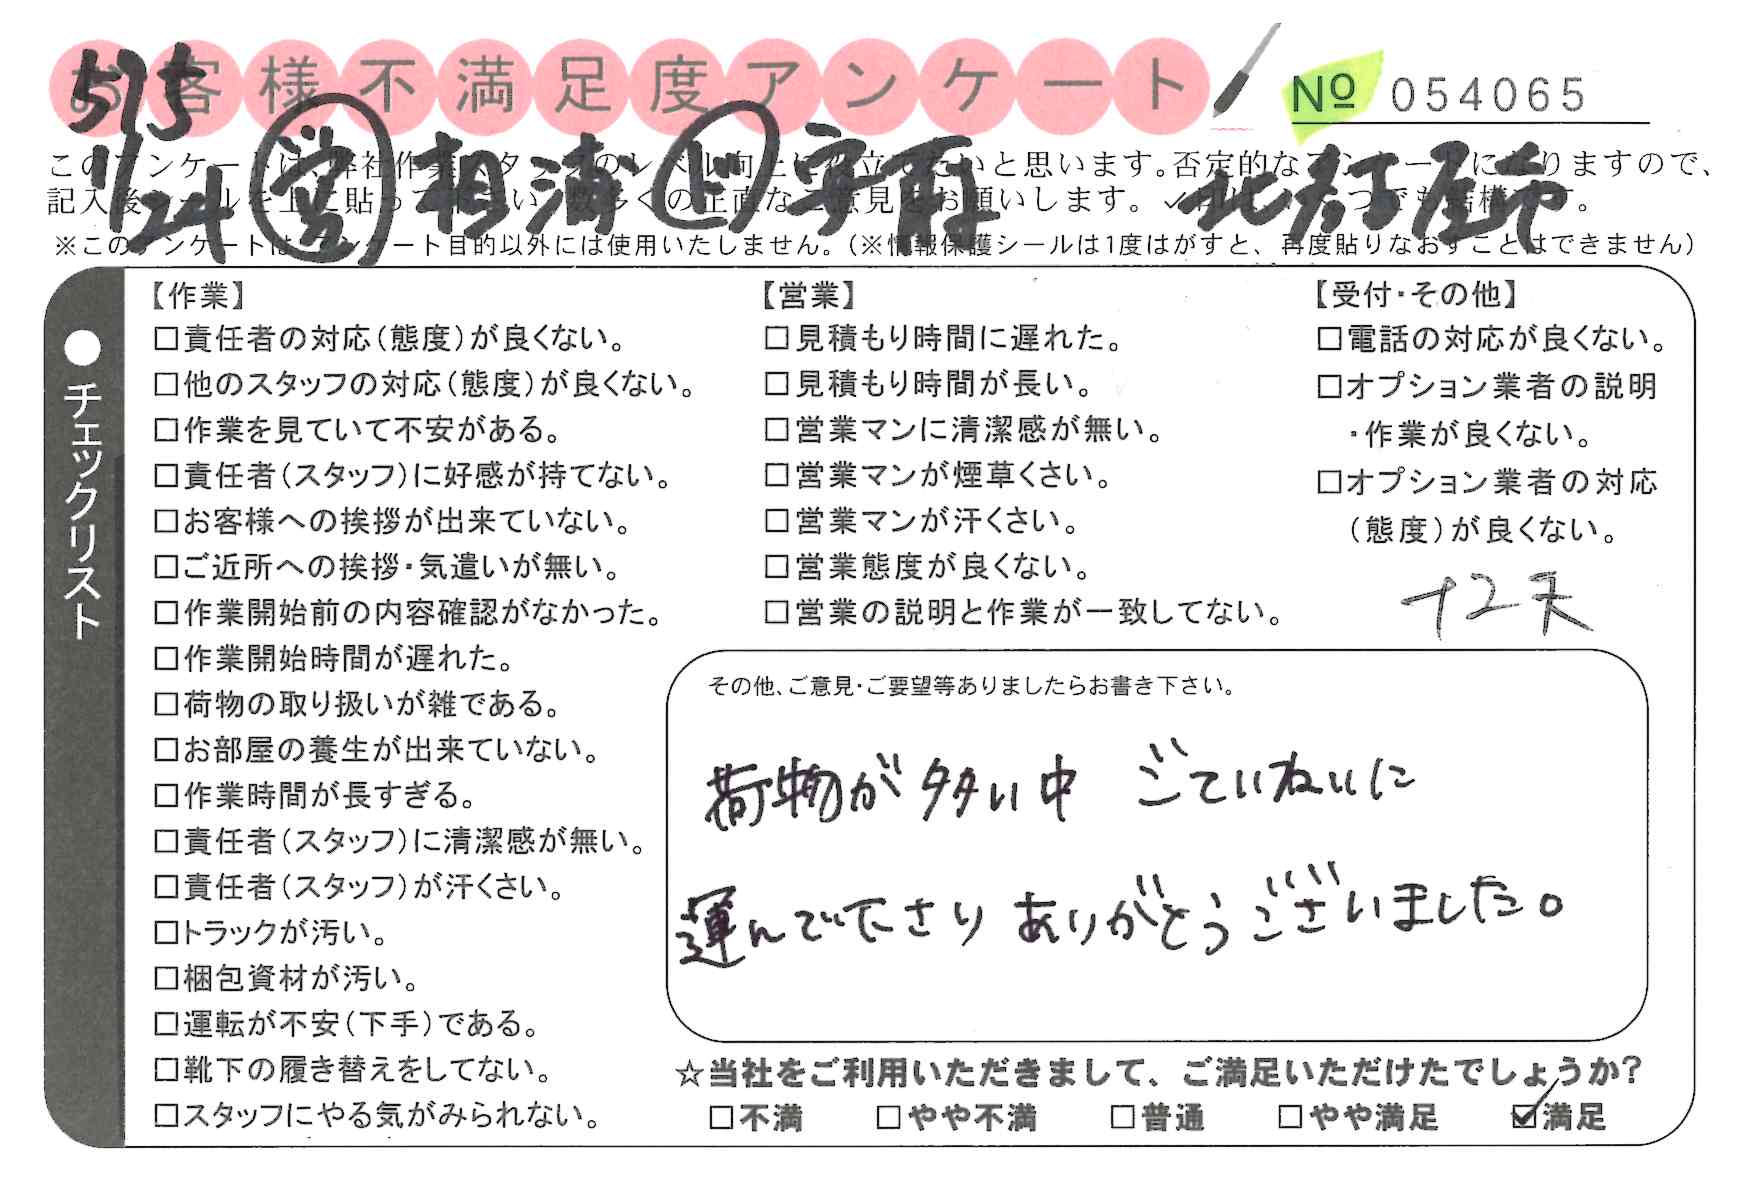 お客様不満足度アンケート
№ 054065
575
11/24 営 相浦 ド 宇再 北名古屋市
このアンケートは、弊社作業スタッフのレベル向上に役立てたいと思います。否定的なアンケートになりますので、
記入後シールを上に貼って下さい。数多くの正直なご意見をお願いします。✓印はいくつでも結構です。
※このアンケートは、アンケート目的以外には使用いたしません。（※情報保護シールは1度はがすと、再度貼りなおすことはできません）
●チェックリスト
【作業】
□責任者の対応（態度）が良くない。
□他のスタッフの対応（態度）が良くない。
□作業を見ていて不安がある。
□責任者（スタッフ）に好感が持てない。
□お客様への挨拶が出来ていない。
□ご近所への挨拶・気遣いが無い。
□作業開始前の内容確認がなかった。
□作業開始時間が遅れた。
□荷物の取り扱いが雑である。
□お部屋の養生が出来ていない。
□作業時間が長すぎる。
□責任者（スタッフ）に清潔感が無い。
□責任者（スタッフ）が汗くさい。
□トラックが汚い。
□梱包資材が汚い。
□運転が不安（下手）である。
□靴下の履き替えをしてない。
□スタッフにやる気がみられない。
【営業】
□見積もり時間に遅れた。
□見積もり時間が長い。
□営業マンに清潔感が無い。
□営業マンが煙草くさい。
□営業マンが汗くさい。
□営業態度が良くない。
□営業の説明と作業が一致してない。
【受付・その他】
□電話の対応が良くない。
□オプション業者の説明
・作業が良くない。
□オプション業者の対応
（態度）が良くない。
+2天
その他、ご意見・ご要望等ありましたらお書き下さい。
荷物が多い中 ごていねいに
運んで下さり ありがとうございました。
☆当社をご利用いただきまして、ご満足いただけたでしょうか?
□不満 □やや不満 □普通 □やや満足 ☑満足